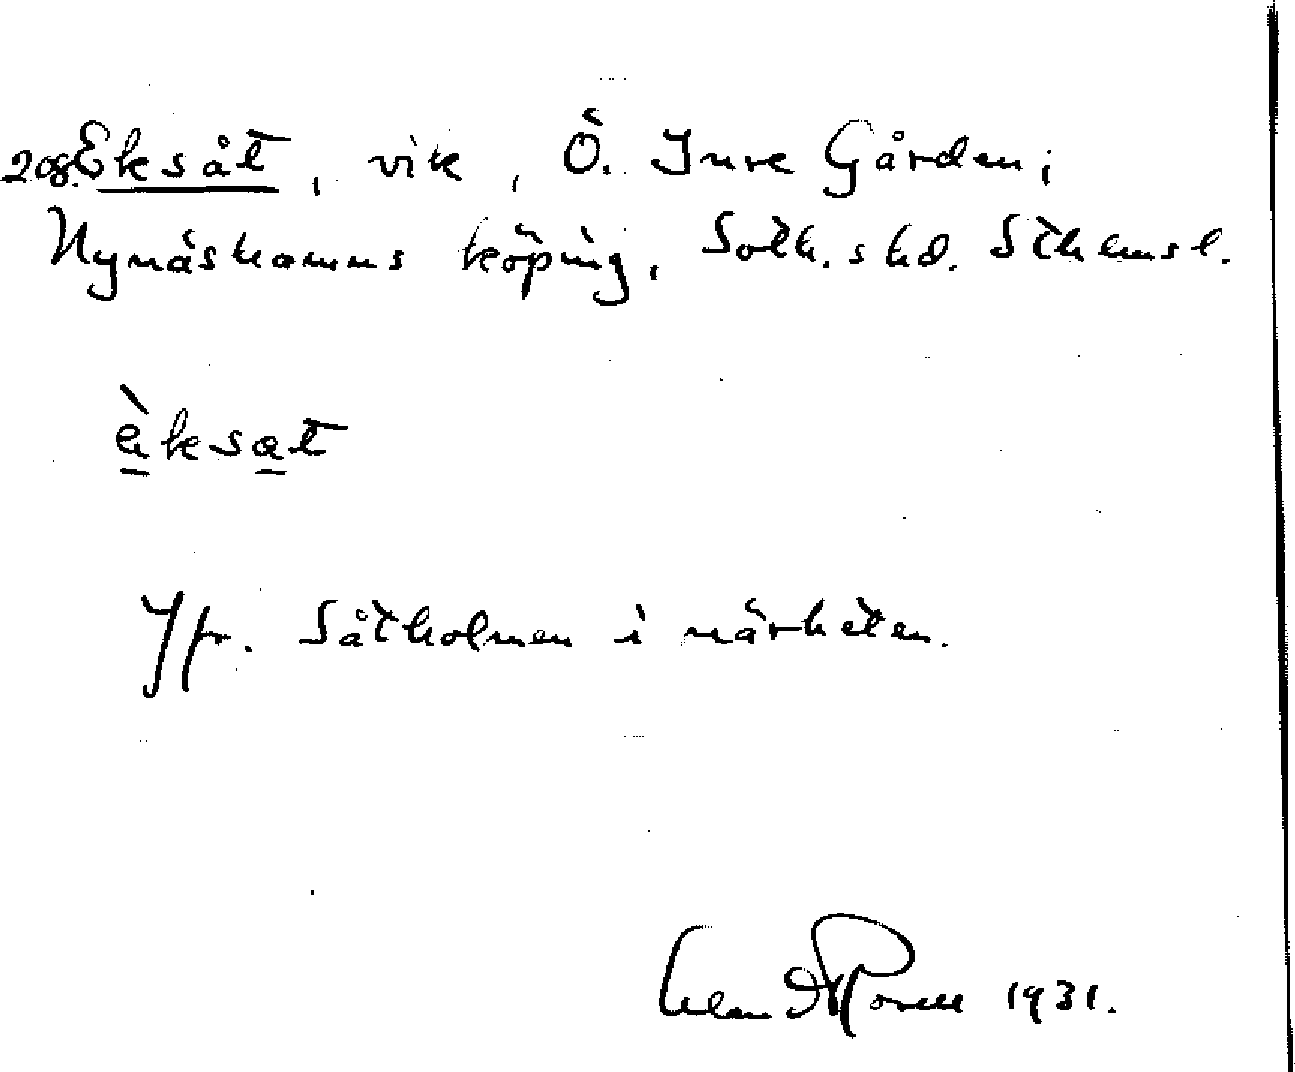 208. Eksåt, vik, Ö. Inre Gården,
Nynäshamns köping, Soth. shd. Sthmsl.
èksat
Jfr. Såtholmen i närheten.
1931.